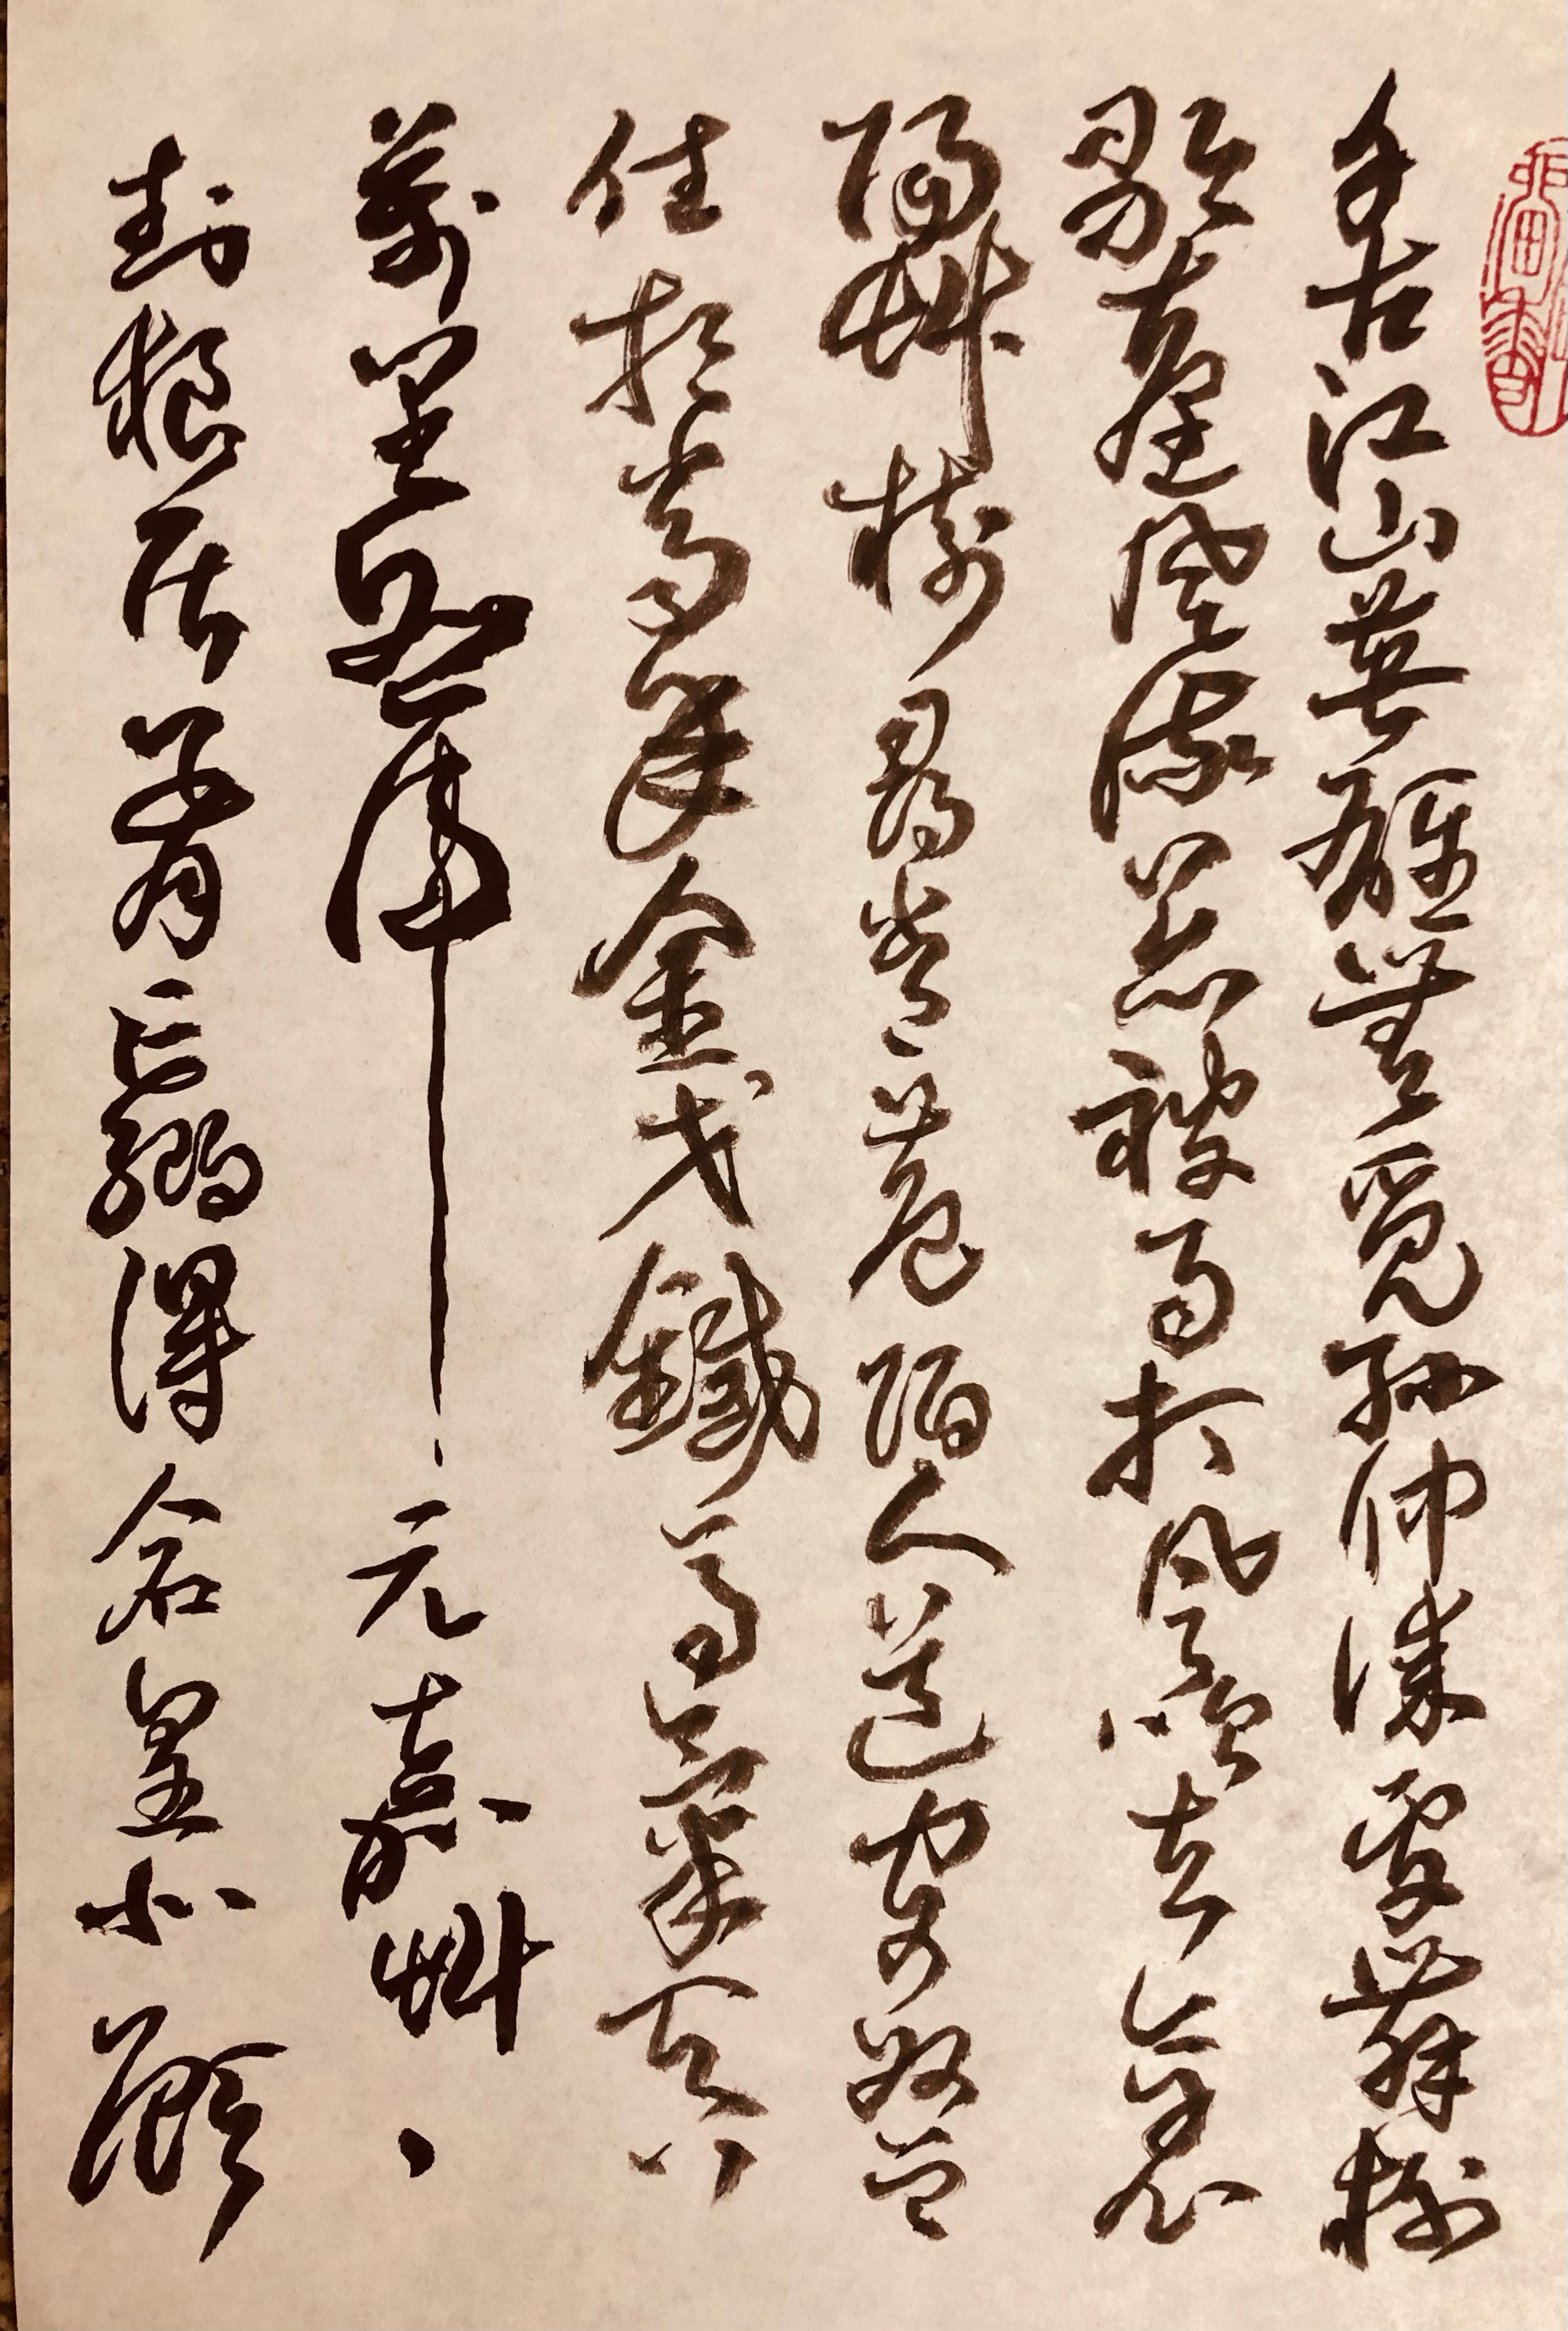 千古江山英雄無覓孫仲謀處舞榭
歌臺風流總被雨打風吹去斜
陽艸樹尋常巷陌人道寄奴曾
住想當年金戈鐵馬氣吞
萬里如虎元嘉艸、
封狼居胥贏得倉皇北顧